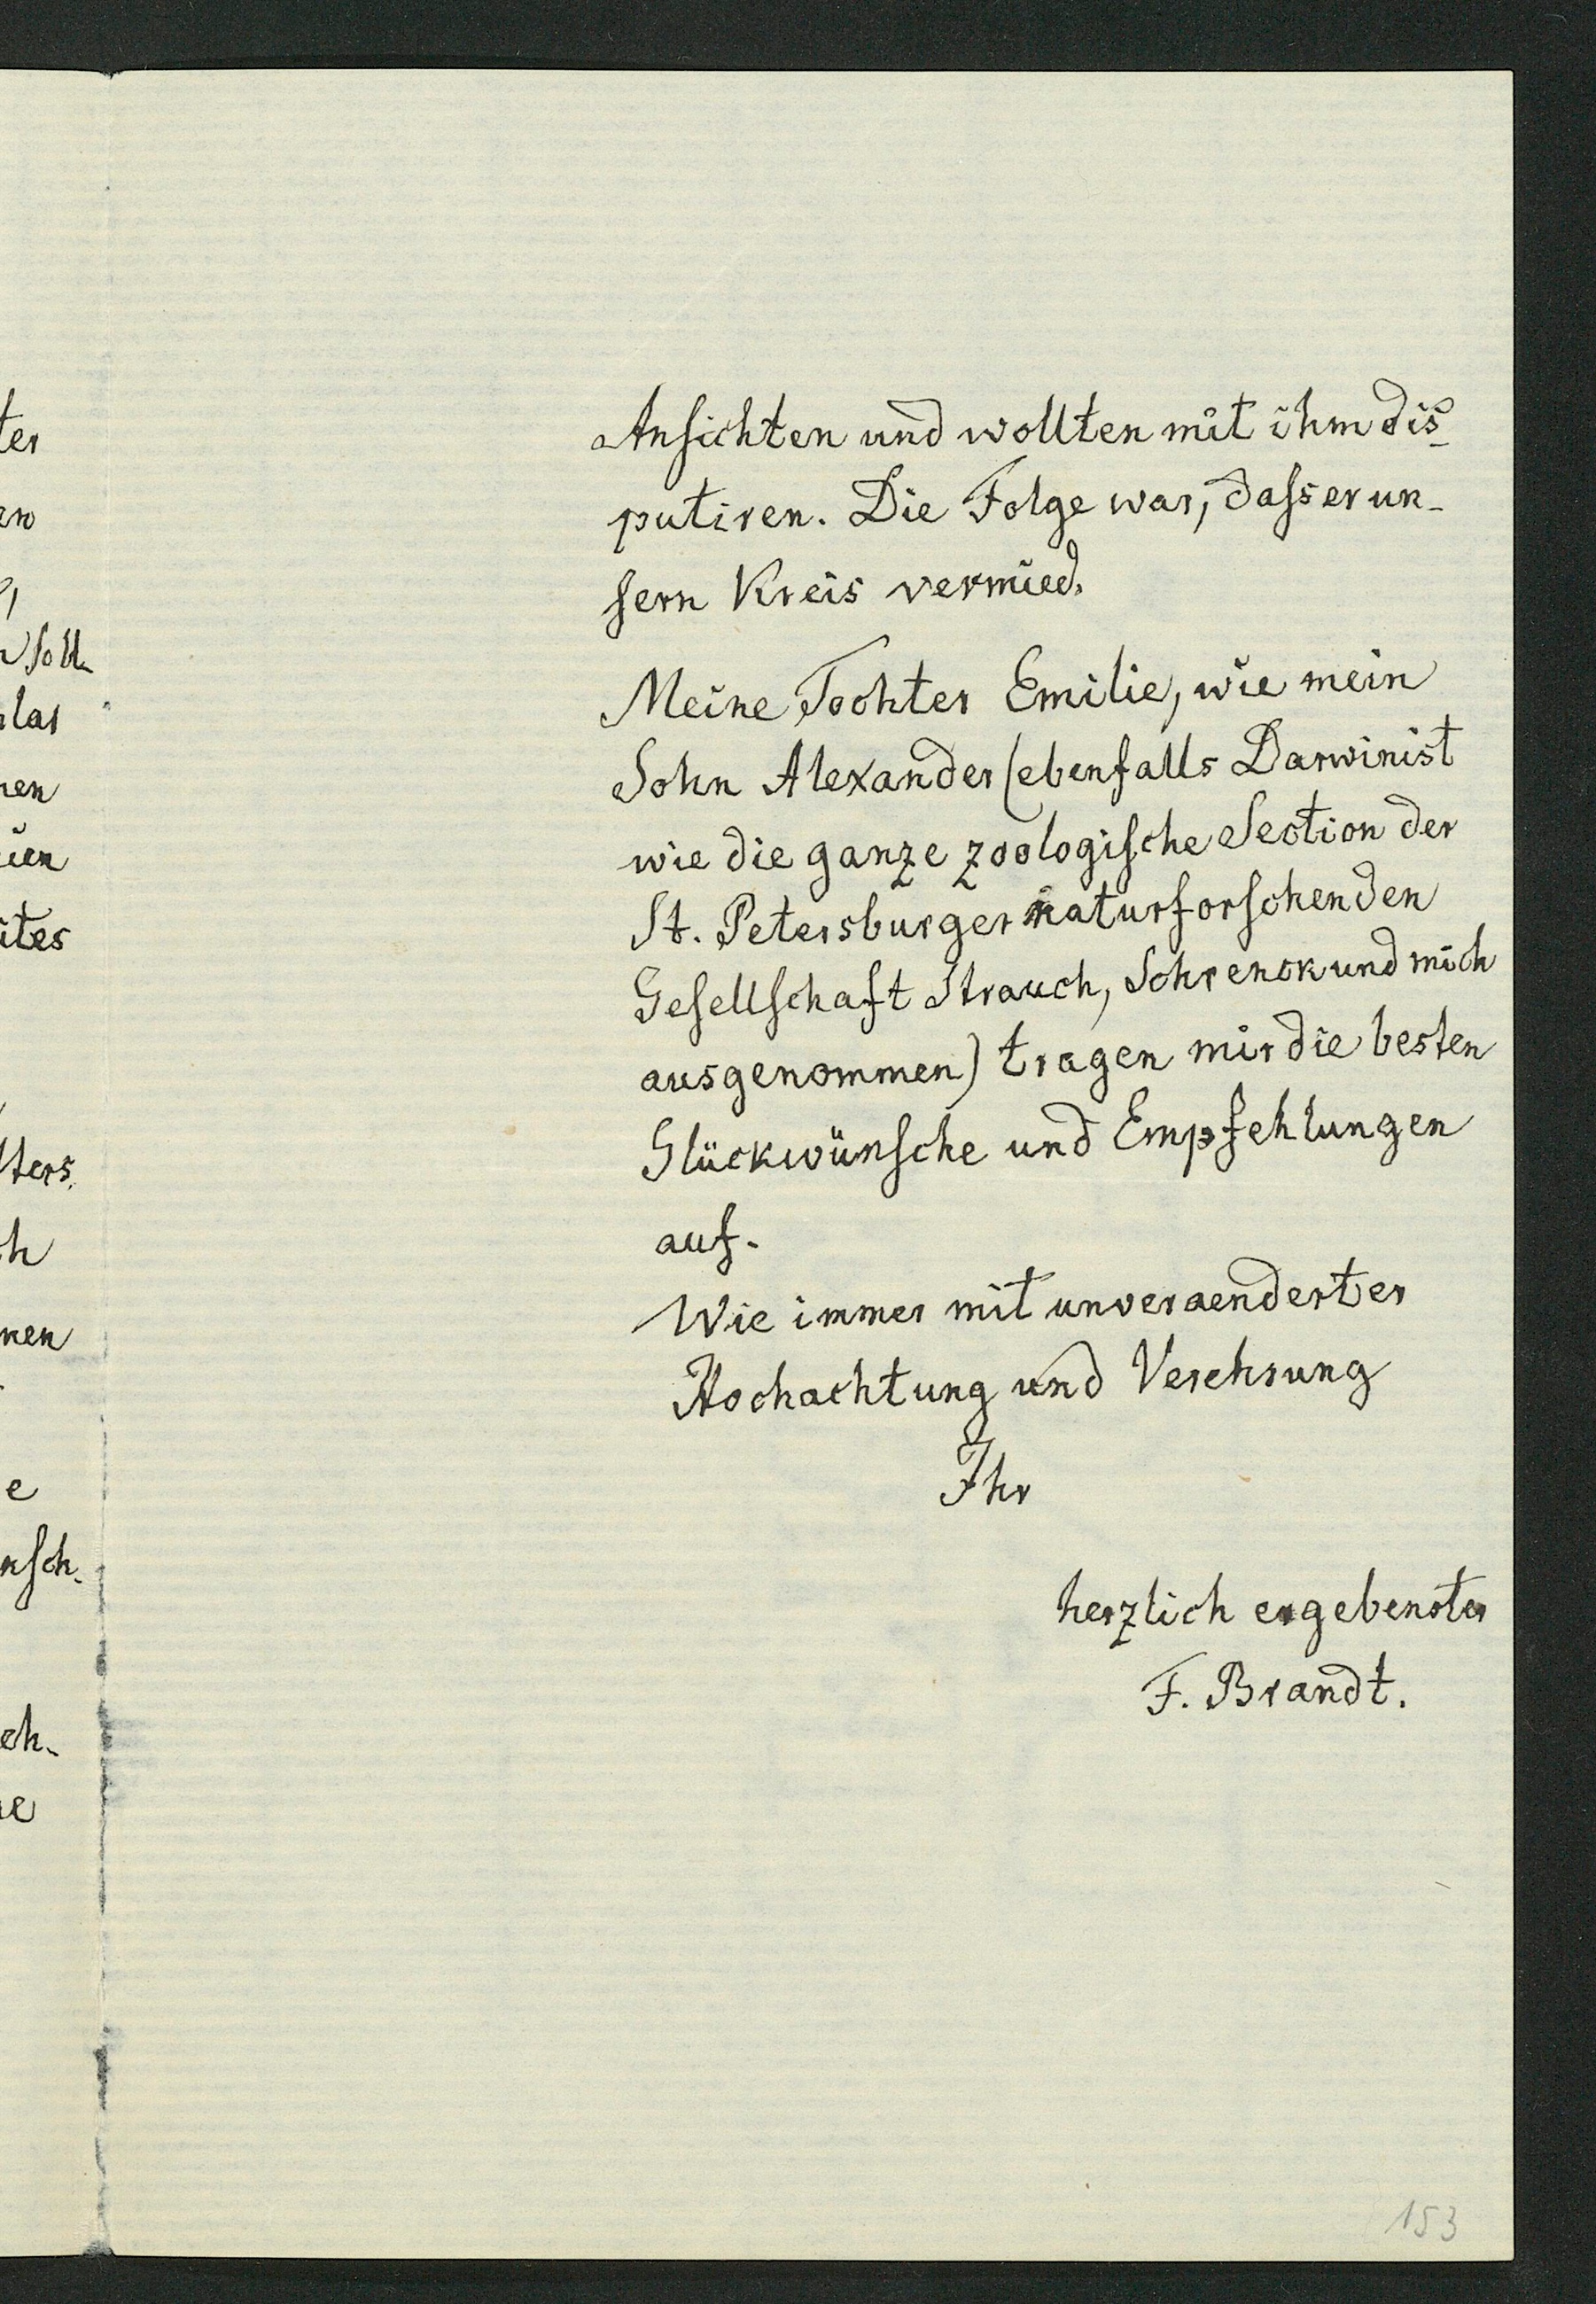 ter
en
soll-
las
nen
ien
ites
lters.
ch
nen
e
nsch-
ch-
ne
Ansichten und wollten mit ihm dis-
putiren. Die Folge war, dass er un-
sern Kreis vermied.
Meine Tochter Emilie, wie mein
Sohn Alexander (ebenfalls Darwinist
wie die ganze zoologische Section der
St. Petersburger naturforschenden
Gesellschaft Strauch, Schrenck und mich
ausgenommen) tragen mir die besten
Glückwünsche und Empfehlungen
auf.
Wie immer mit unveraenderter
Hochachtung und Verehrung
Ihr
herzlich ergebenster
F. Brandt.
153